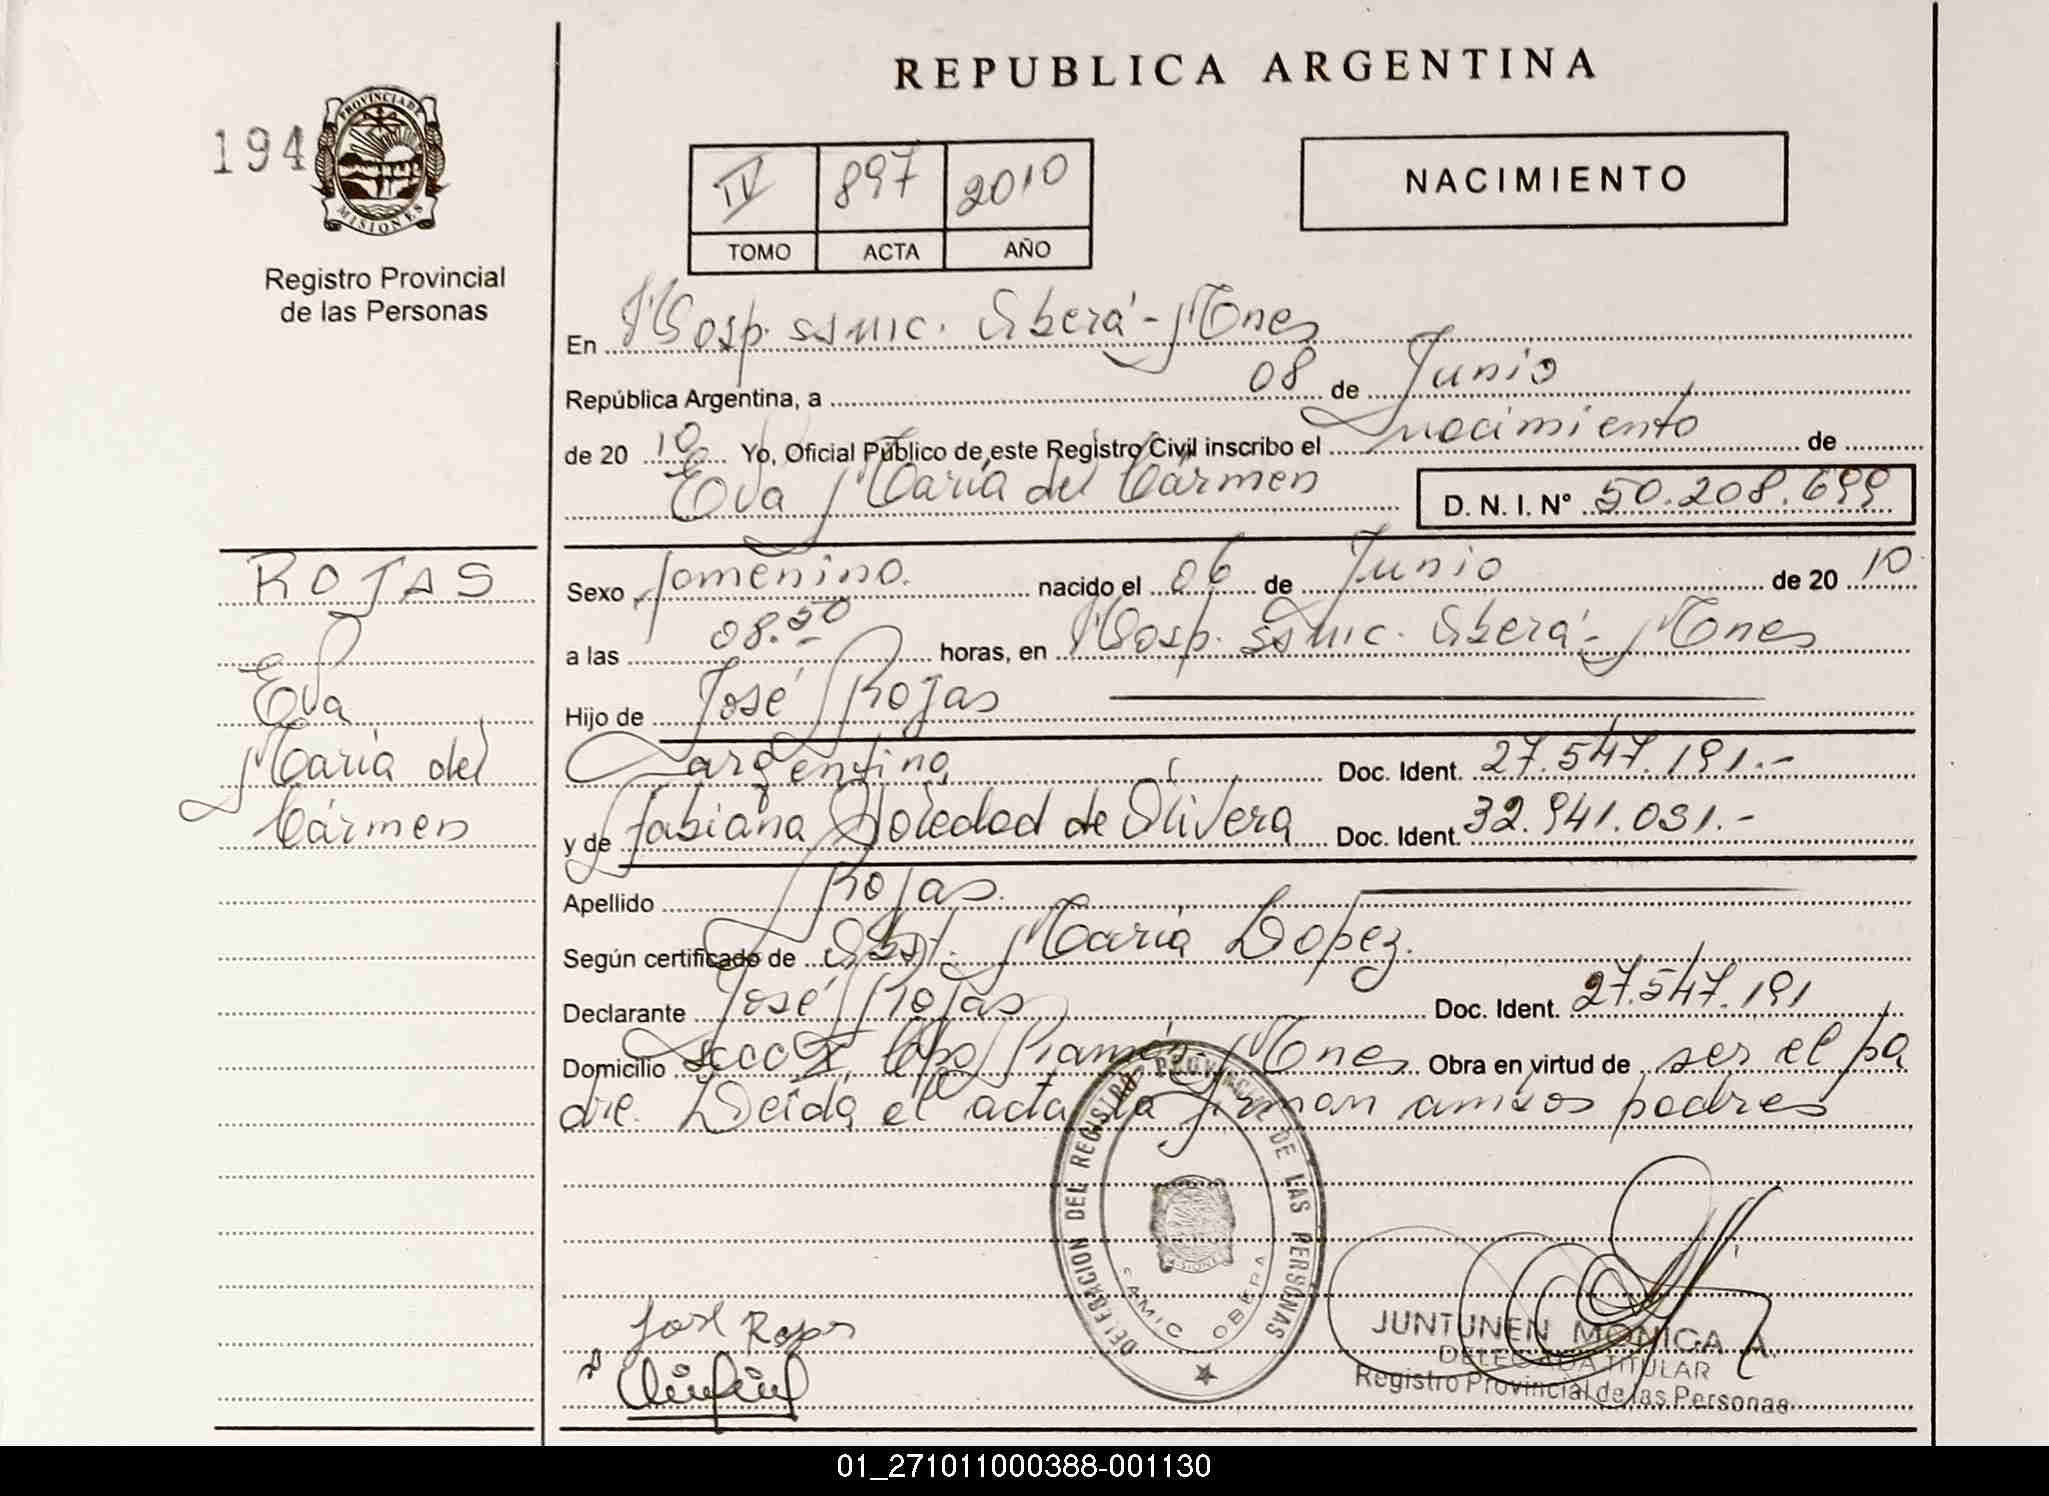 REPUBLICA ARGENTINA
194
PROVINCIA DE
MISIONES
Registro Provincial
de las Personas
IV 897 2010
TOMO ACTA AÑO
NACIMIENTO
En Hosp. SSMIC. Oberá - Mnes
República Argentina, a 08 de Junio
de 20 10 Yo, Oficial Público de este Registro Civil inscribo el nacimiento de
Eva María del Cármen D. N. I. Nº 50.208.699
ROJAS
Eva
María del
Cármen
Sexo femenino. nacido el 06 de Junio de 20 10
a las 08.50 horas, en Hosp. SSMIC. Oberá - Mnes
Hijo de José Rojas
argentino Doc. Ident. 27.547.191.-
y de Fabiana Soledad de Olivera Doc. Ident. 32.941.031.-
Apellido Rojas.
Según certificado de Obst. María Lopez.
Declarante José Rojas Doc. Ident. 27.547.191
Domicilio Cpo Ramón - Mnes Obra en virtud de ser el pa
dre. Leída el acta la firman ambos padres
DELEGACION DEL REGISTRO PROVINCIAL DE LAS PERSONAS
SAMIC OBERA
MISIONES
José Rojas
JUNTUNEN MONICA A.
DELEGADA TITULAR
Registro Provincial de las Personas
01_271011000388-001130